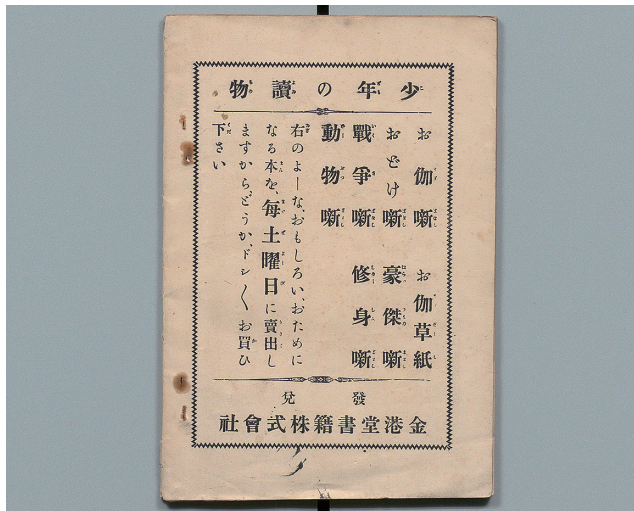 少年の讀物
お伽噺 お伽草紙
おどけ噺 豪傑噺
戰爭噺 修身噺
動物噺
右のよーな、おもしろい、おために
なる本を、每土曜日に賣出し
ますから、どうか、ドシ〱お買ひ
下さい
發兌
金港堂書籍株式會社